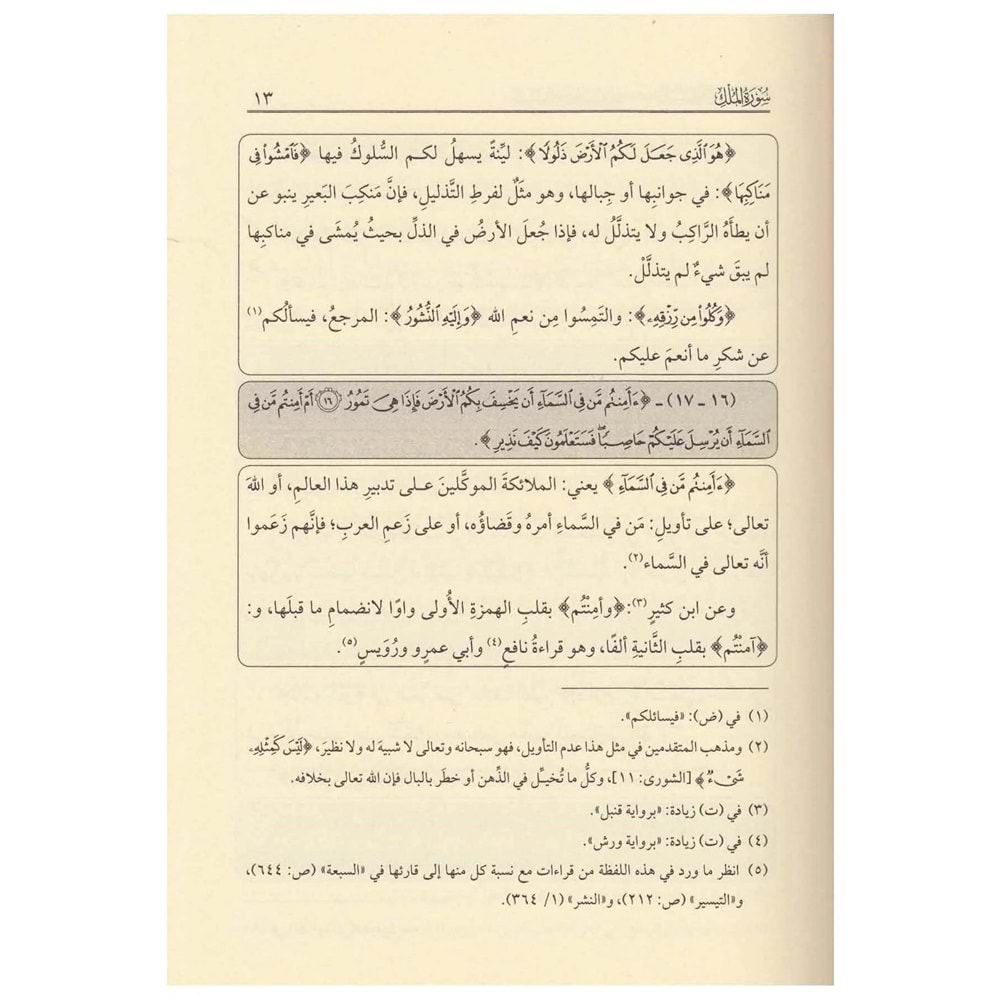 سُورَةُ المُلْكِ ١٣
﴿هُوَ الَّذِى جَعَلَ لَكُمُ الْأَرْضَ ذَلُولًا﴾: ليِّنةً يسهلُ لكـم السُّلوكُ فيها ﴿فَامْشُوا فِى
مَنَاكِبِهَا﴾: في جوانبِها أو جبالها، وهو مثَلٌ لفرطِ التَّذليلِ، فإنَّ مَنكِبَ البَعيرِ ينبو عن
أن يطأَهُ الرَّاكِبُ ولا يتذلَّلُ له، فإذا جُعلَ الأرضُ في الذلِّ بحيثُ يُمشَى في مناكبِها
لم يبقَ شيءٌ لم يتذلَّلْ.
﴿وَكُلُوا مِن رِّزْقِهِۦ﴾: والتَمِسُوا مِن نعمِ الله ﴿وَإِلَيْهِ النُّشُورُ﴾: المرجعُ، فيسألُكم(١)
عن شكرِ ما أنعمَ عليكم.
(١٦ - ١٧) - ﴿ءَأَمِنتُم مَّن فِى السَّمَآءِ أَن يَخْسِفَ بِكُمُ الْأَرْضَ فَإِذَا هِىَ تَمُورُ ۝١٦ أَمْ أَمِنتُم مَّن فِى
السَّمَآءِ أَن يُرْسِلَ عَلَيْكُمْ حَاصِبًا ۖ فَسَتَعْلَمُونَ كَيْفَ نَذِيرِ﴾.
﴿ءَأَمِنتُم مَّن فِى السَّمَآءِ﴾ يعني: الملائكةَ الموكَّلينَ علـى تدبيرِ هذا العالمِ، أو اللهَ
تعالى؛ على تأويلِ: مَن في السَّماءِ أمرهُ وقَضاؤُه، أو على زَعمِ العربِ؛ فإنَّهم زَعَموا
أنَّه تعالى في السَّماء(٢).
وعن ابن كثيرٍ(٣): ﴿وأمِنْتُم﴾ بقلبِ الهمزةِ الأُولى واوًا لانضمامِ ما قبلَها، و:
﴿آمنْتُم﴾ بقلبِ الثَّانيةِ ألفًا، وهو قراءةُ نافعٍ(٤) وأبي عمرٍو ورُوَيسٍ(٥).
(١) في (ض): «فيسائلكم».
(٢) ومذهب المتقدمين في مثل هذا عدم التأويل، فهو سبحانه وتعالى لا شبيهَ له ولا نظيرَ، ﴿لَيْسَ كَمِثْلِهِۦ
شَىْءٌ﴾ [الشورى: ١١]، وكلُّ ما تُخيـِّل في الذِّهن أو خطَر بالبال فإن الله تعالى بخلافه.
(٣) في (ت) زيادة: «برواية قنبل».
(٤) في (ت) زيادة: «برواية ورش».
(٥) انظر ما ورد في هذه اللفظة من قراءات مع نسبة كل منها إلى قارئها في «السبعة» (ص: ٦٤٤)،
و«التيسير» (ص: ٢١٢)، و«النشر» (١/ ٣٦٤).